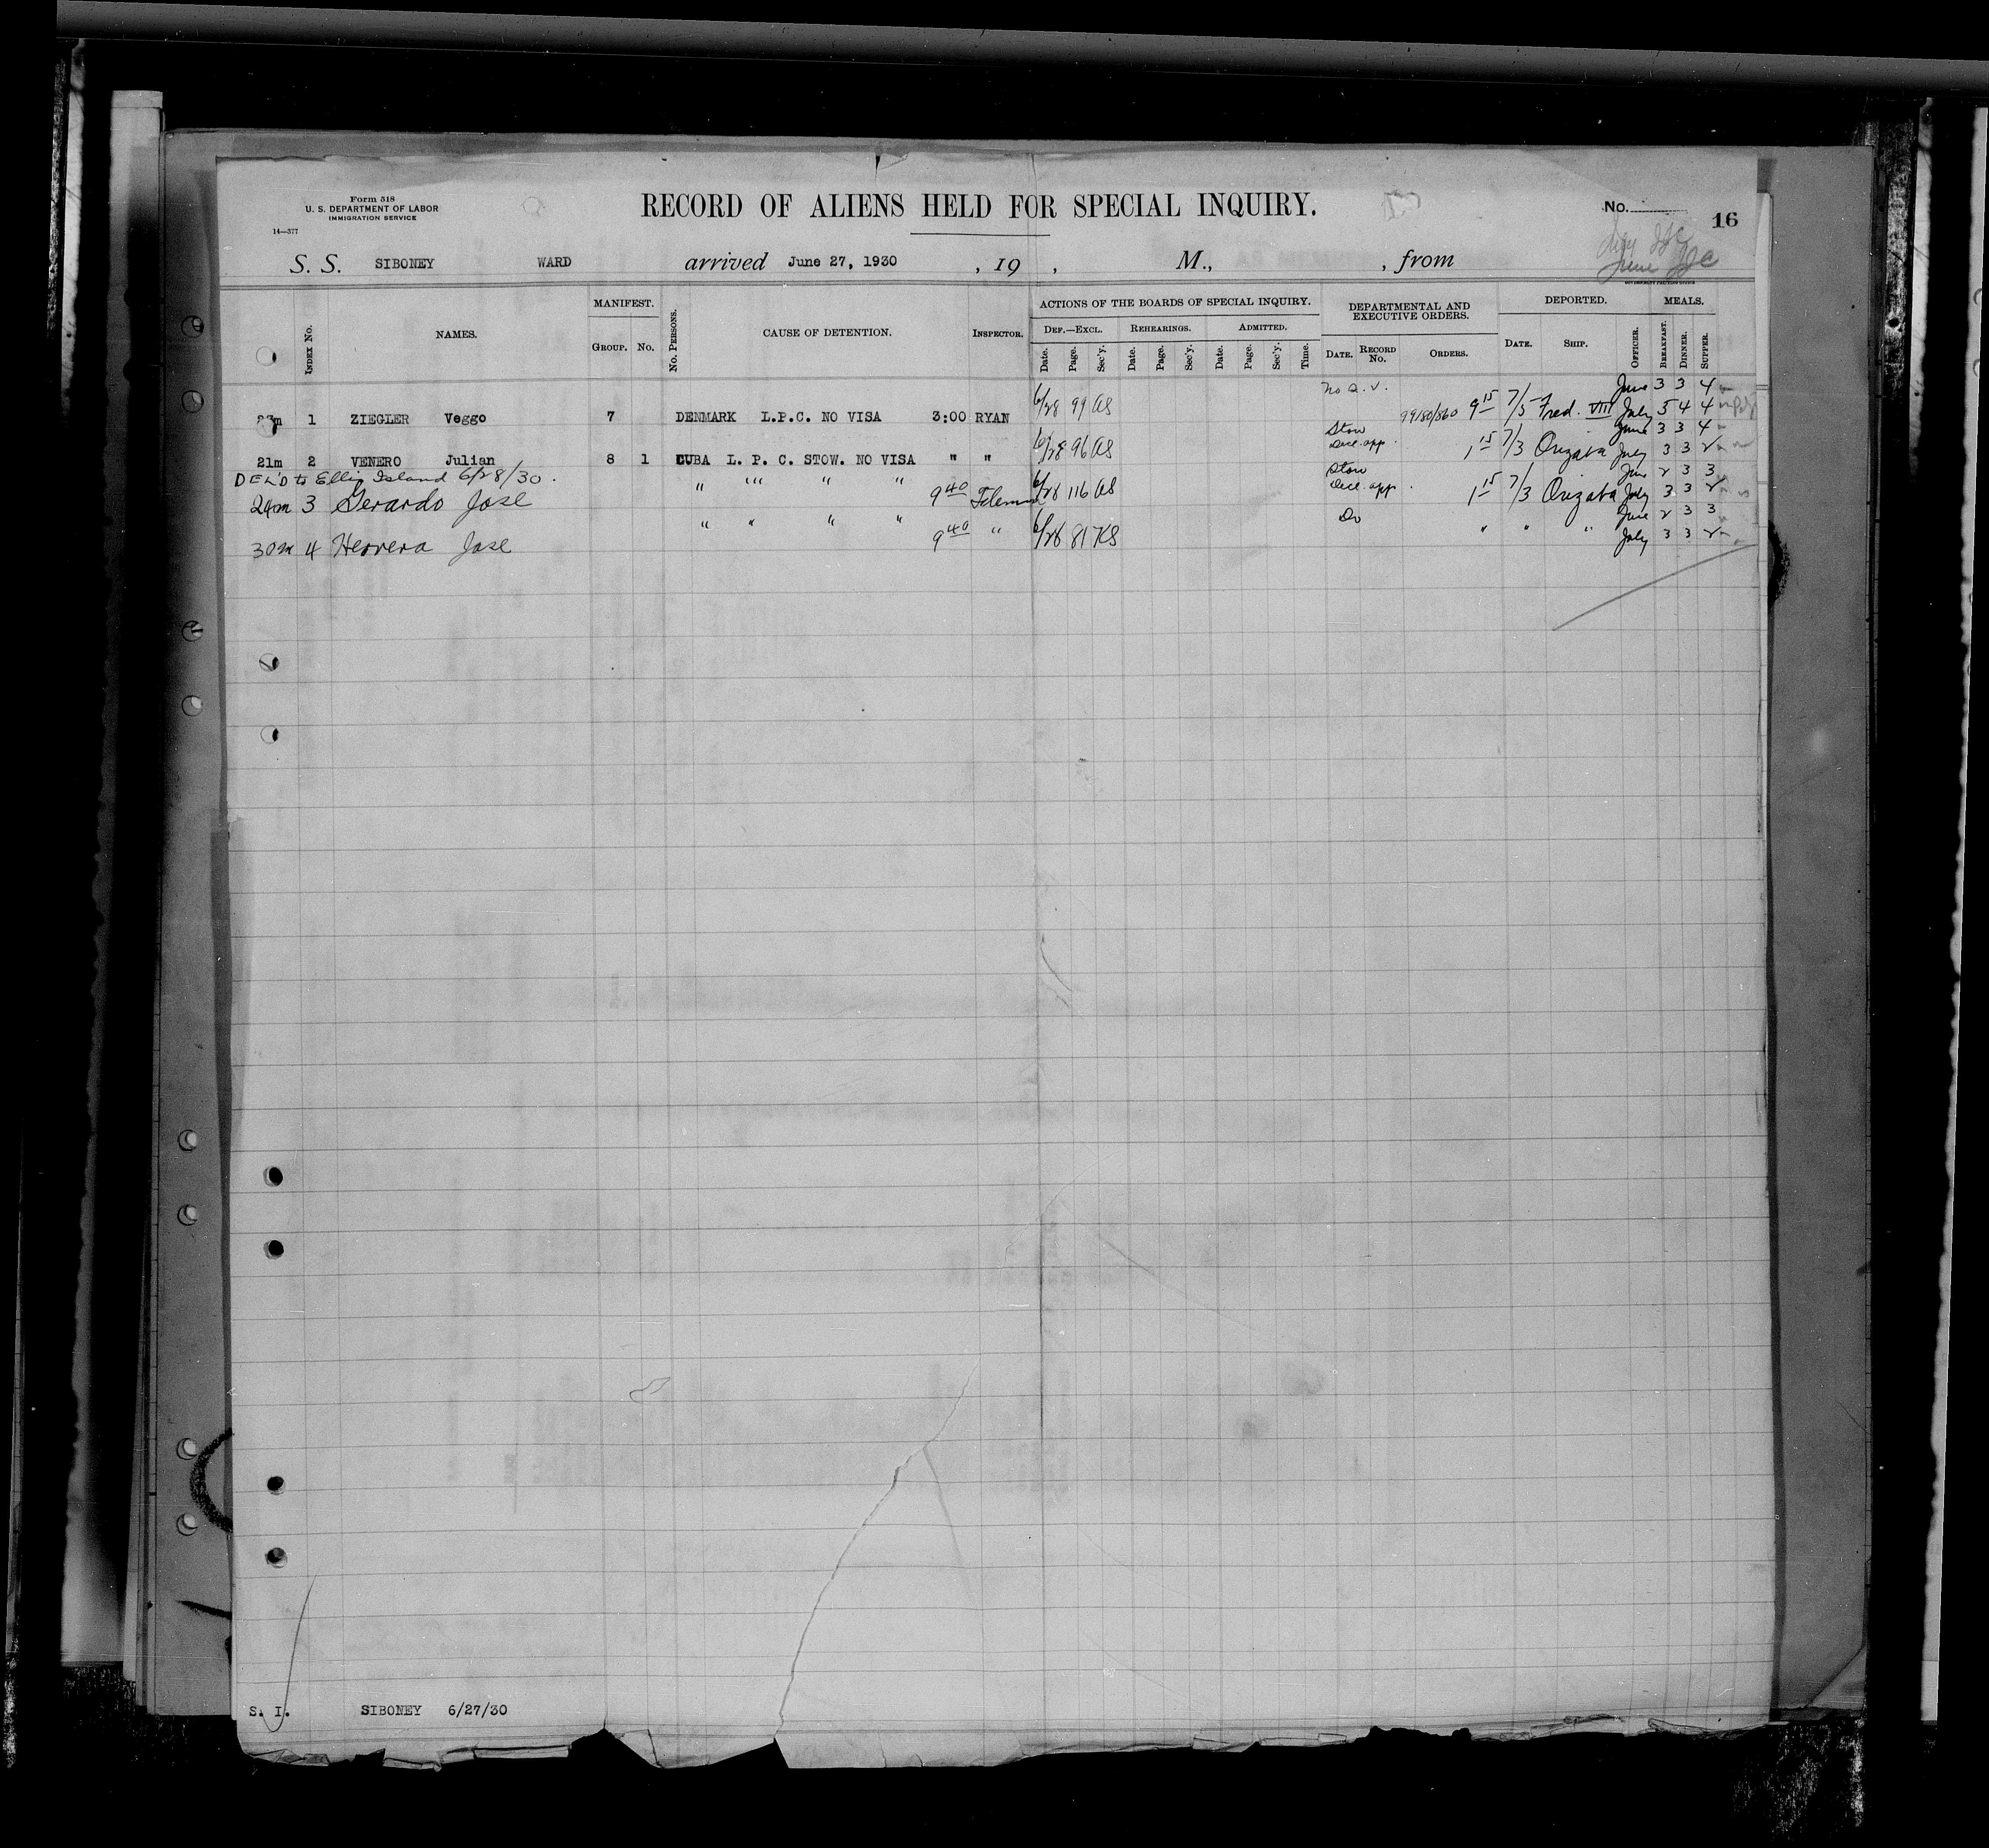 Form 518
U. S. DEPARTMENT OF LABOR
IMMIGRATION SERVICE
14—377
RECORD OF ALIENS HELD FOR SPECIAL INQUIRY.
No.
16
S. S. SIBONEY WARD arrived June 27, 1930 , 19 , M., , from
June
GOVERNMENT PRINTING OFFICE
INDEX No. NAMES. MANIFEST. GROUP. No. No. PERSONS. CAUSE OF DETENTION. INSPECTOR.
ACTIONS OF THE BOARDS OF SPECIAL INQUIRY. DEF.—EXCL. REHEARINGS. ADMITTED.
Date. Page. Sec'y. Date. Page. Sec'y. Date. Page. Sec'y. Time.
DEPARTMENTAL AND EXECUTIVE ORDERS. DATE. RECORD No. ORDERS.
DEPORTED. DATE. SHIP. OFFICER. MEALS. BREAKFAST. DINNER. SUPPER.
June 3 3 4
1 ZIEGLER Veggo 7 DENMARK L.P.C. NO VISA 3:00 RYAN 6/28 99 AS 99180/860 9 15 7/5 Fred. VIII July 5 4 4
Stow June 3 3 4
21m 2 VENERO Julian 8 1 CUBA L. P. C. STOW. NO VISA " " 6/28 96 AS Decl. app. 1 15 7/3 Orizaba July 3 3 2
DEL'D to Ellis Island 6/28/30.
Stow June 2 3 3
24m 3 Gerardo Jose " " " " 9 40 6/28 116 AS Decl. app. 1 15 7/3 Orizaba July 3 3 2
June 2 3 3
30m 4 Herrera Jose " " " " 9 40 " 6/28 81 KS Do " " " July 3 3 2
S. I. SIBONEY 6/27/30